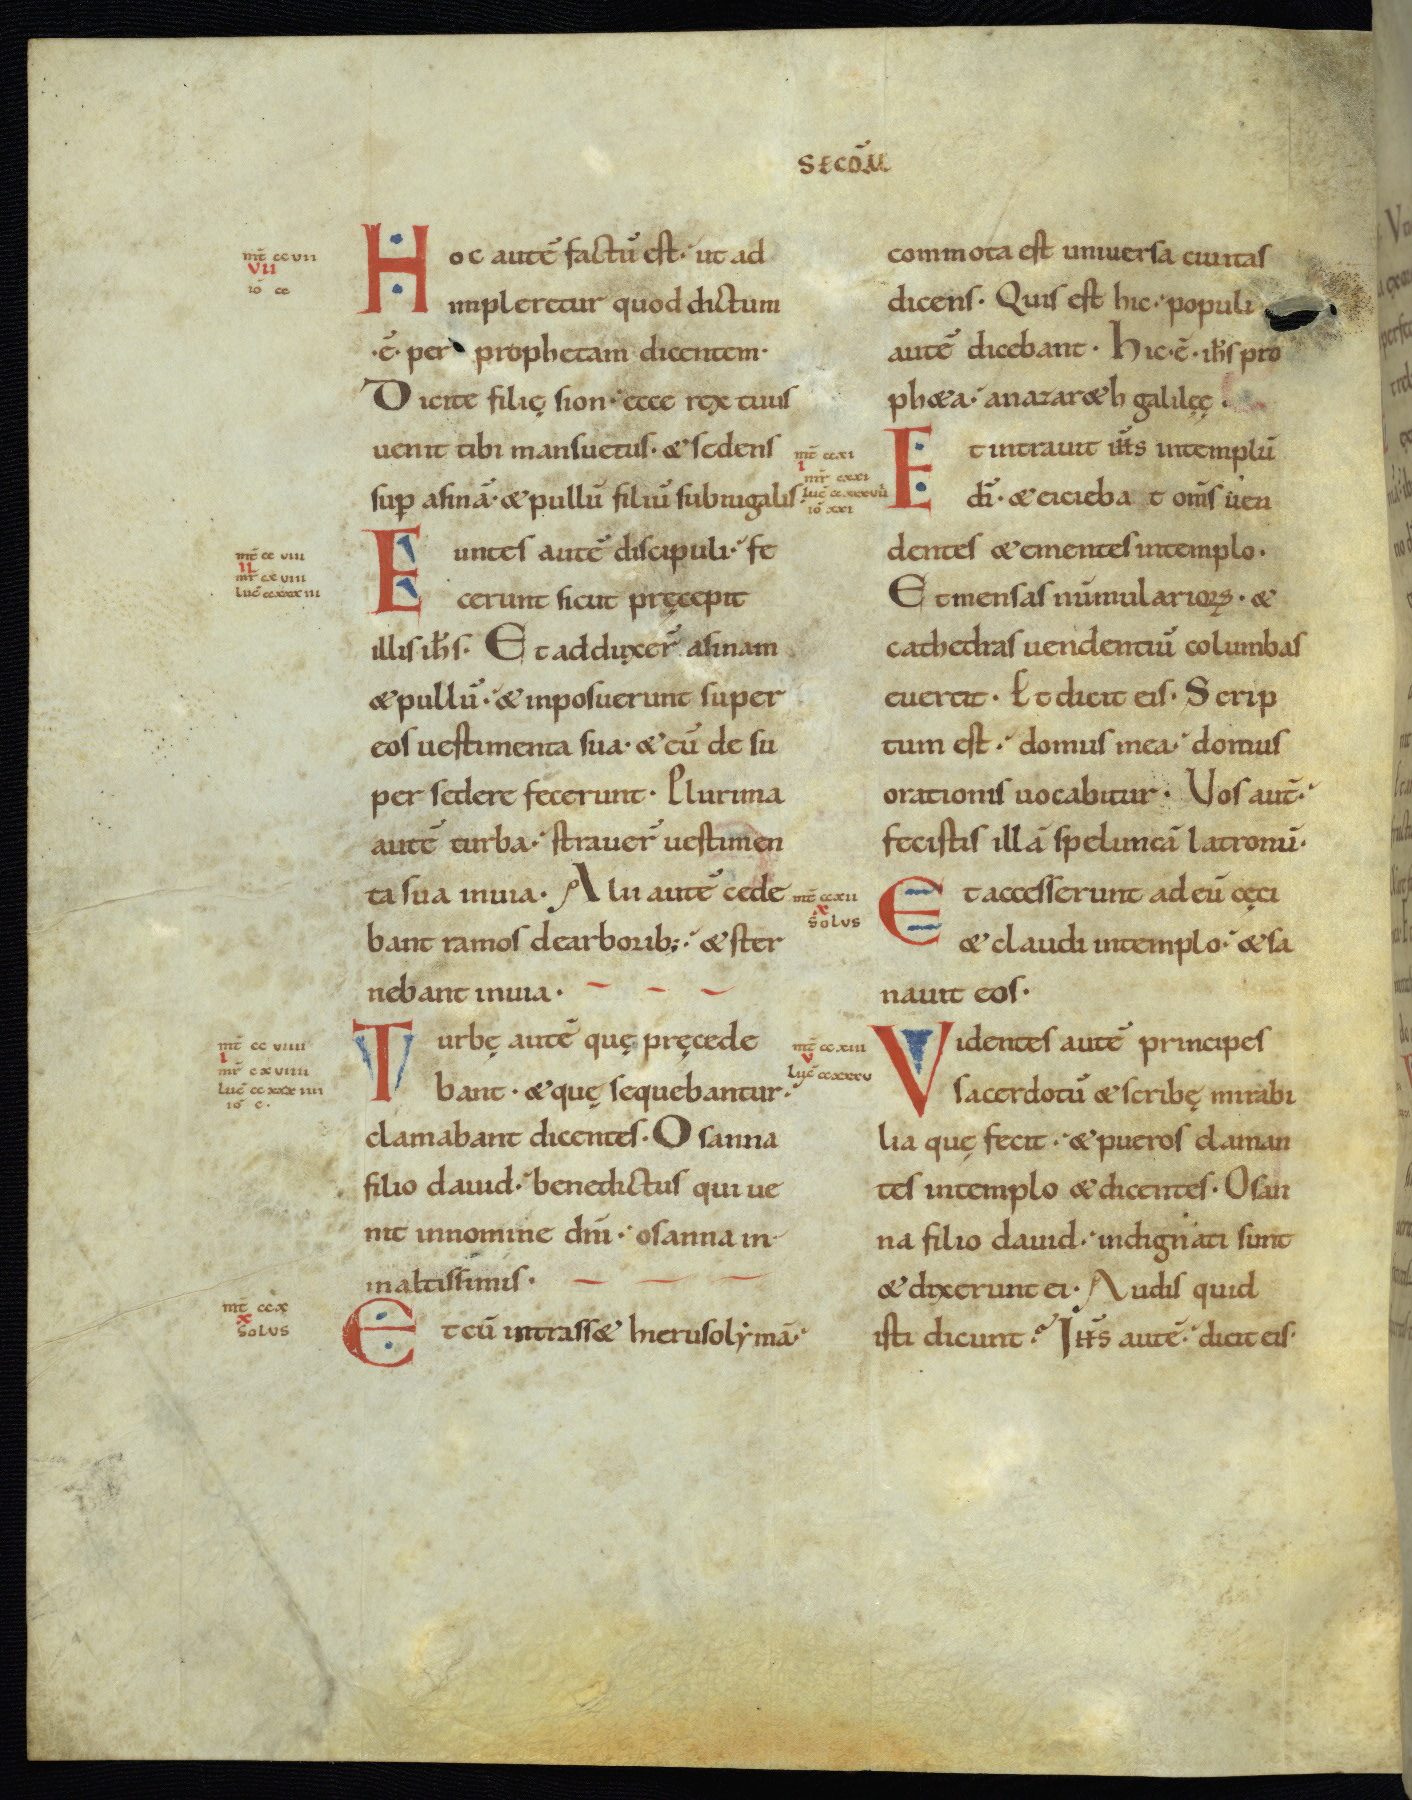 SECŌM
mt̄ ccvii
vii
iō cc
Hoc autē factū est· ut ad
impleretur quod dictum
·ē· per prophetam dicentem·
Dicite filię sion· ecce rex tuus
uenit tibi mansuetus· & sedens
sup asinā· & pullū filiū subiugalis·
mt̄ cc viii
ii
mr̄ cx viii
luc̄ ccxxxiii
Euntes autē discipuli· fe
cerunt sicut pręcepit
illis ihs̄· Et adduxer̄ asinam
& pullū· & inposuerunt super
eos uestimenta sua· & eū de su
per sedere fecerunt· Plurima
autē turba· strauer̄ uestimen
ta sua inuia· Alii autē cede
bant ramos dearborib;· & ster
nebant inuia·
mt̄ cc viiii
i
mr̄ cxviiii
luc̄ ccxxxiiii
iō c·
Turbę autē quę pręcede
bant· & quę sequebantur·
clamabant dicentes· Osanna
filio dauid· benedictus qui ue
nit innomine dnī· osanna in
inaltissimis·
mt̄ ccx
x
Solus
Et cū intrass& hierusolymā·
commota est uniuersa ciuitas
dicens· Quis est hic· populi
autē dicebant· Hic·ē· ihs̄ pro
ph&a· anazar&h galilęę·
mt̄ ccxi
i
mr̄ cxxi
luc̄ ccxxxvii
iō xxi
Et intrauit ih̄s intemplū
dī· & eicieba t om̄s uen
dentes & ementes intemplo·
Et mensas nūmulariorꝝ· &
cathedras uendentiū columbas
euertit· Et dicit eis· Scrip
tum est· domus mea· domus
orationis uocabitur· Vos aut̄·
fecistis illā speluncā latronū·
mt̄ ccxii
x
Solus
Et accesserunt ad eū cęci
& claudi intemplo· & sa
nauit eos·
mt̄ ccxiii
v
luc̄ ccxxxv
Videntes autē principes
sacerdotū & scribę mirabi
lia quę fecit· & pueros claman
tes intemplo & dicentes· Osan
na filio dauid· indignati sunt
& dixerunt ei· Audis quid
isti dicunt· Ih̄s autē· dicit eis·